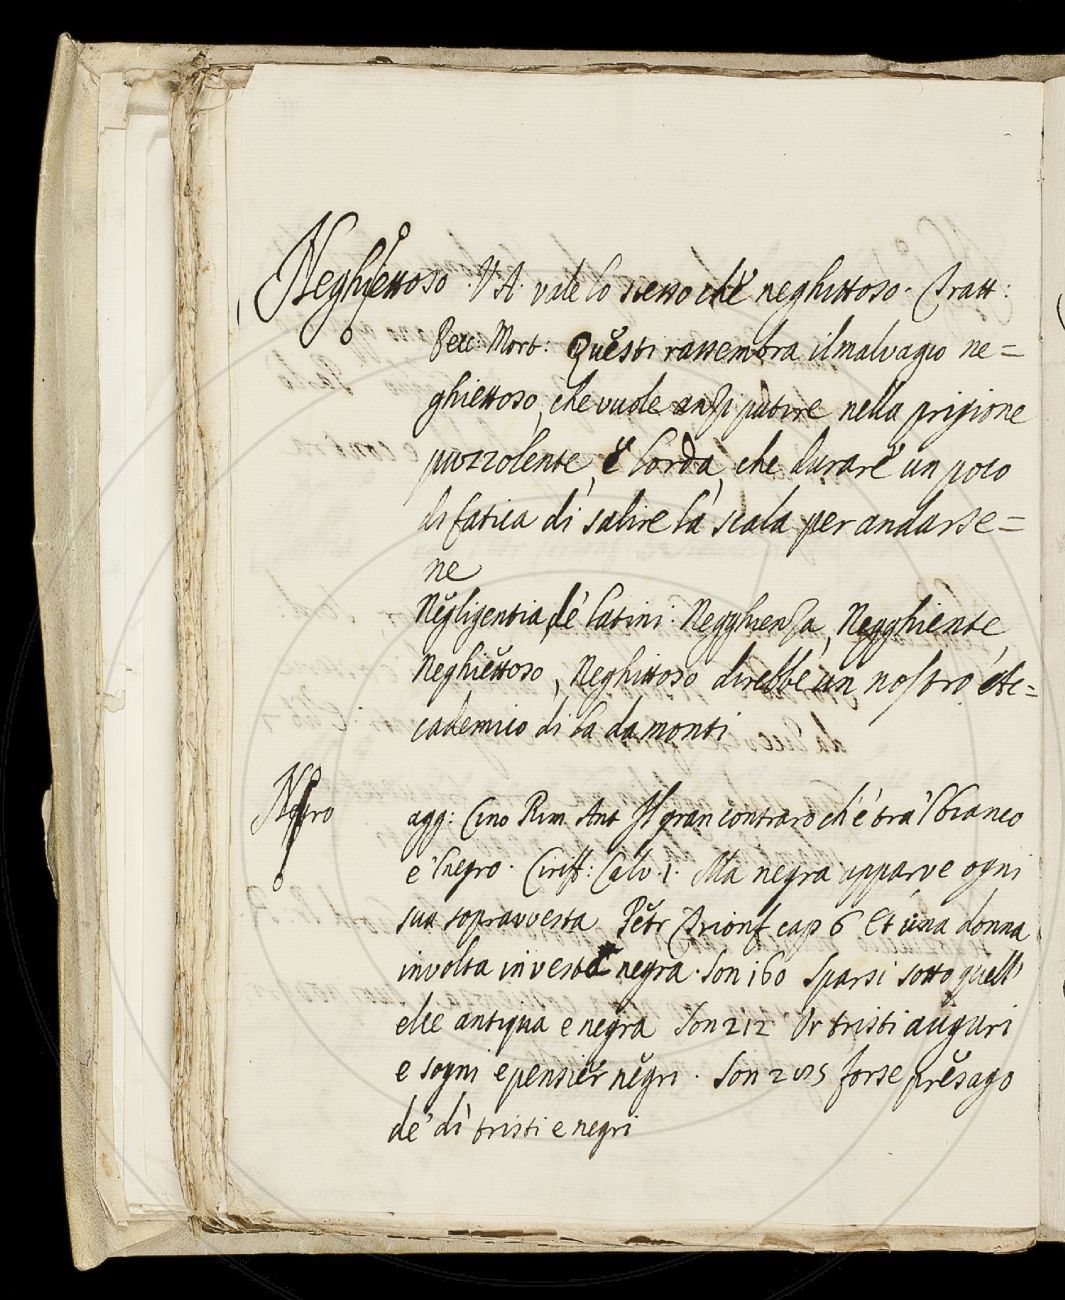 Neghiettoso. V. A. vale lo stesso che neghittoso. Tratt:
Pecc: Mort: Questi rassembra il malvagio ne=
ghiettoso, che vuole anzi patire nella prigione
puzzolente, e lorda, che durare un poco
di fatica di salire la scala per andarse=
ne
Negligentia de' latini. Negghienza, Negghiente,
Neghiettoso, Neghittoso direbbe un nostro Ac=
cademico di là da monti
Negro agg: Cino Rim Ant Il gran contraro ch'è tra 'l bianco
e 'l negro. Ciriff: Calv. 1. Ma negra apparve ogni
sua sopravvesta Petr Trionf cap 6 Et una donna
involta in vesta negra. Son 160 Sparsi sotto quell'
elce antiqua e negra Son 212 Or tristi auguri
e sogni e pensier negri. Son forse presago
de' dì tristi e negri